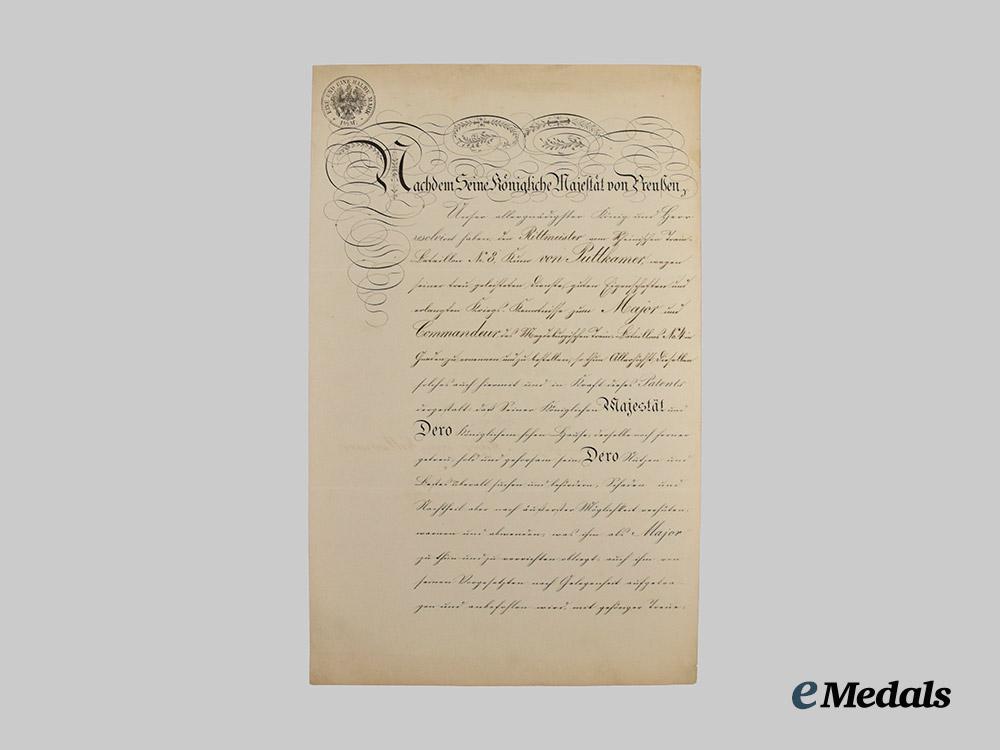 EINE UND EINE HALBE MARK
1½ M.
Nachdem Seine Königliche Majestät von Preußen,
Unser allergnädigster König und Herr
resolvirt haben, den Rittmeister vom Rheinischen Train-
Bataillon No 8, von Puttkamer, wegen
seiner treu geleisteten Dienste, guten Eigenschaften und
erlangten Kriegs-Kenntnisse zum Major und
Commandeur des Magdeburgischen Train-Bataillons No 4 in
Gnaden zu ernennen und zu bestellen; so thun Allerhöchst dieselben
solches auch hiermit und in Kraft dieses Patents
dergestalt, daß Seiner Königlichen Majestät und
Dero Königlichem hohen Hause, derselbe noch ferner
getreu, hold und gehorsam sein, Dero Nutzen und
Bestes überall suchen und befördern, Schaden und
Nachtheil aber nach äußerster Möglichkeit verhüten,
warnen und abwenden, was ihm als Major
zu thun und zu verrichten obliegt, auch ihm von
seinen Vorgesetzten nach Gelegenheit aufgetra-
gen und anbefohlen wird, mit gehöriger Treue,
eMedals